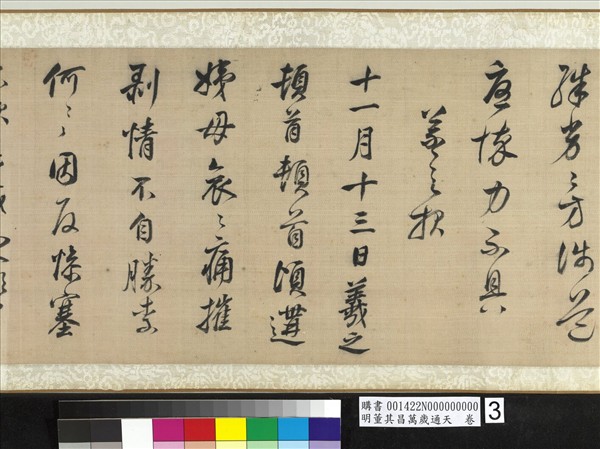 殊劣々方涉道
憂悴力不具
羲之報
十一月十三日羲之
頓首頓首頃遘
姨母哀々痛摧
剝情不自勝奈
何々因反慘塞
購書 001422N000000000
明董其昌萬歲通天 卷
3